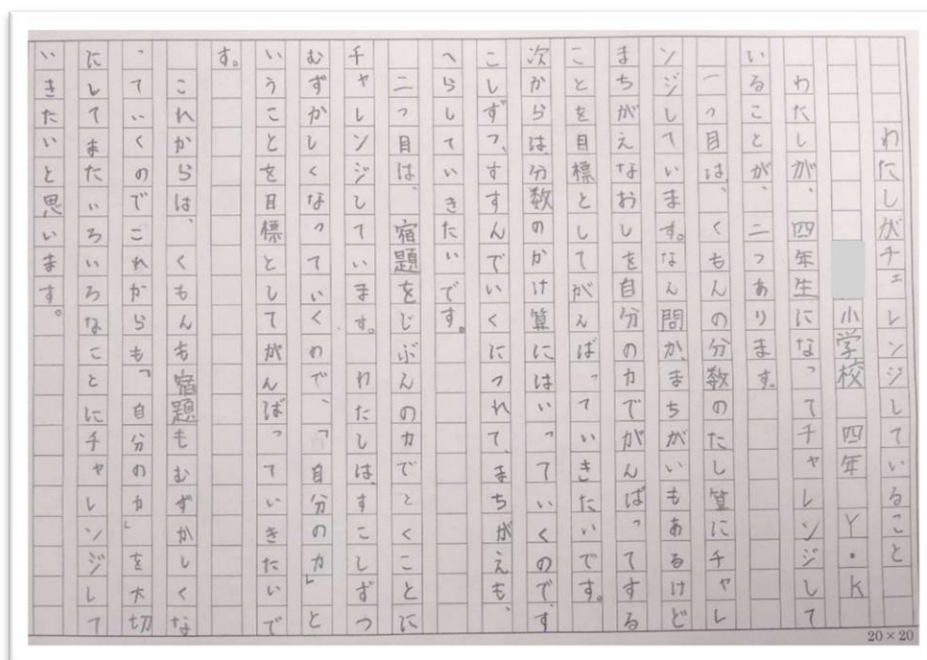 わたしがチェレンジしていること
小学校 四年 Y・K
わたしが、四年生になってチャレンジして
いることが、二つあります。
一つ目は、くもんの分数のたし算にチャレ
ンジしています。なん問か、まちがいもあるけど
まちがえなおしを自分の力でがんばってする
ことを目標としてがんばっていきたいです。
次からは、分数のかけ算にはいっていくのです
こしずつ、すすんでいくにつれて、まちがえも、
へらしていきたいです。
二つ目は、宿題をじぶんの力でとくことに
チャレンジしています。わたしは、すこしずつ
むずかしくなっていくので、「自分の力」と
いうことを目標としてがんばっていきたいで
す。
これからは、くもんも宿題もむずかしくな
っていくのでこれからも「自分の力」を大切
にしてまたいろいろなことにチャレンジして
いきたいと思います。
20×20